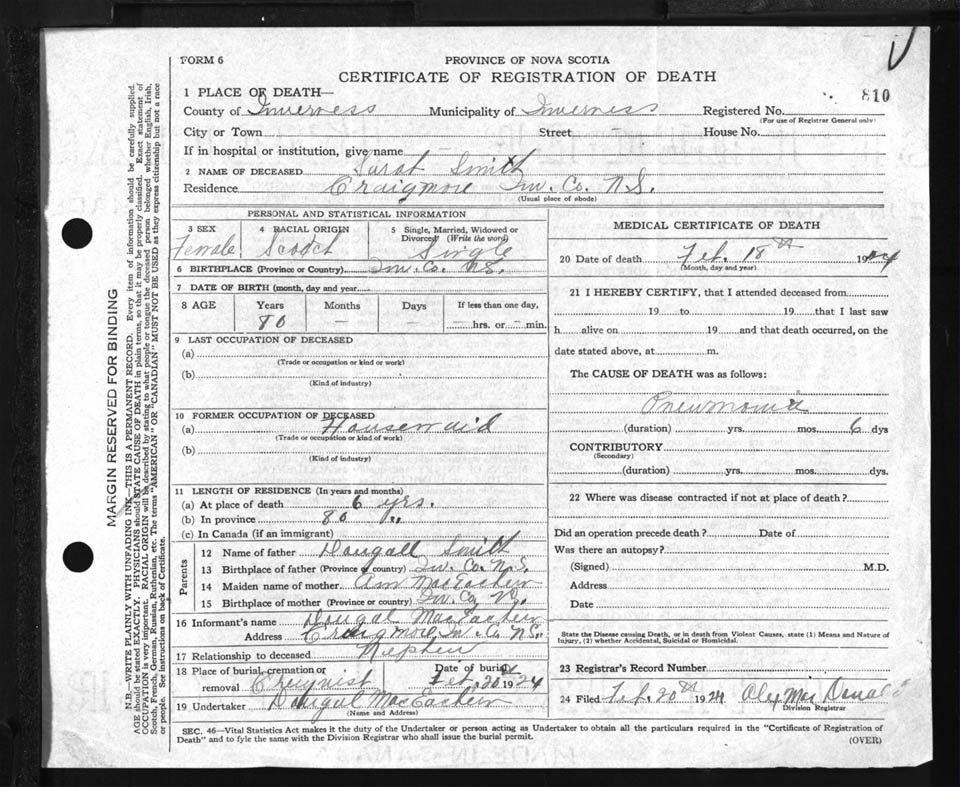 FORM 6
PROVINCE OF NOVA SCOTIA
CERTIFICATE OF REGISTRATION OF DEATH
810
1 PLACE OF DEATH—
County of Inverness Municipality of Inverness Registered No.
(For use of Registrar General only)
City or Town Street - House No.
If in hospital or institution, give name
2 NAME OF DECEASED Sarah Smith
Residence Craigmore Inv. Co. N.S.
(Usual place of abode)
PERSONAL AND STATISTICAL INFORMATION
3 SEX Female
4 RACIAL ORIGIN Scotch
5 Single, Married, Widowed or Divorced (Write the word) Single
6 BIRTHPLACE (Province or Country) Inv. Co. N.S.
7 DATE OF BIRTH (month, day and year)
8 AGE Years Months Days If less than one day,
80 — — — hrs. or — min.
9 LAST OCCUPATION OF DECEASED
(a)
(Trade or occupation or kind or work)
(b)
(Kind of industry)
10 FORMER OCCUPATION OF DECEASED
(a) Housemaid
(Trade or occupation or kind of work)
(b)
(Kind of industry)
11 LENGTH OF RESIDENCE (In years and months)
(a) At place of death 6 yrs.
(b) In province 80 "
(c) In Canada (if an immigrant)
Parents
12 Name of father Dougall Smith
13 Birthplace of father (Province or country) Inv. Co. N.S.
14 Maiden name of mother Ann MacEachern
15 Birthplace of mother (Province or country) Inv. Co.
16 Informant's name Dougal MacEachern
Address Craigmore Inv. Co. N.S.
17 Relationship to deceased Nephew
18 Place of burial, cremation or removal
Date of burial Feb. 20 1924
19 Undertaker Dougal MacEachern
(Name and Address)
MEDICAL CERTIFICATE OF DEATH
20 Date of death Feb. 18th 1924
(Month, day and year)
21 I HEREBY CERTIFY, that I attended deceased from
19 to 19 that I last saw
h alive on 19 and that death occurred, on the
date stated above, at m.
The CAUSE OF DEATH was as follows:
Pneumonia
(duration) yrs. mos. 6 dys
CONTRIBUTORY
(Secondary)
(duration) yrs. mos. dys.
22 Where was disease contracted if not at place of death?
Did an operation precede death? Date of
Was there an autopsy?
(Signed) M.D.
Address
Date
State the Disease causing Death, or in death from Violent Causes, state (1) Means and Nature of
Injury, (2) whether Accidental, Suicidal or Homicidal.
23 Registrar's Record Number
24 Filed Feb. 20th 1924 MacDonald
Division Registrar
SEC. 46—Vital Statistics Act makes it the duty of the Undertaker or person acting as Undertaker to obtain all the particulars required in the "Certificate of Registration of
Death" and to fyle the same with the Division Registrar who shall issue the burial permit.
(OVER)
MARGIN RESERVED FOR BINDING
N.B.—WRITE PLAINLY WITH UNFADING INK—THIS IS A PERMANENT RECORD. Every item of information should be carefully supplied.
AGE should be stated EXACTLY. PHYSICIANS should STATE CAUSE OF DEATH in plain terms, so that it may be properly classified. Exact statement of
OCCUPATION is very important. RACIAL ORIGIN will be described by stating to what people or tongue the deceased person belonged whether English, Irish,
Scotch, French, German, Russian, Ruthenian, etc. The terms "AMERICAN" OR "CANADIAN" MUST NOT BE USED as they express citizenship but not a race
or people. See instructions on back of Certificate.